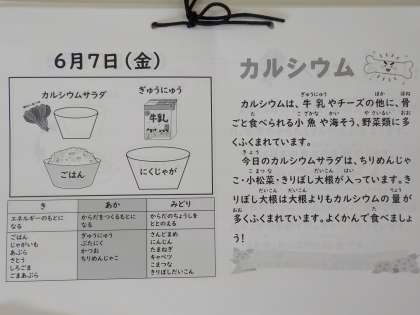 6月7日(金)
カルシウムサラダ
ぎゅうにゅう
牛乳
ごはん
にくじゃが
き
あか
みどり
エネルギーのもとに
なる
からだをつくるもとに
なる
からだのちょうしを
ととのえる
ごはん
じゃがいも
あぶら
さとう
しろごま
ごまあぶら
ぎゅうにゅう
ぶたにく
かつお
ちりめんじゃこ
さんどまめ
にんじん
たまねぎ
キャベツ
こまつな
きりぼしだいこん
カルシウム
カルシウムは、牛乳やチーズの他に、骨
ごと食べられる小魚や海そう、野菜類に多
くふくまれています。
今日のカルシウムサラダは、ちりめんじゃ
こ・小松菜・きりぼし大根が入っています。き
りぼし大根は大根よりもカルシウムの量が
多くふくまれています。よくかんで食べましょ
う!